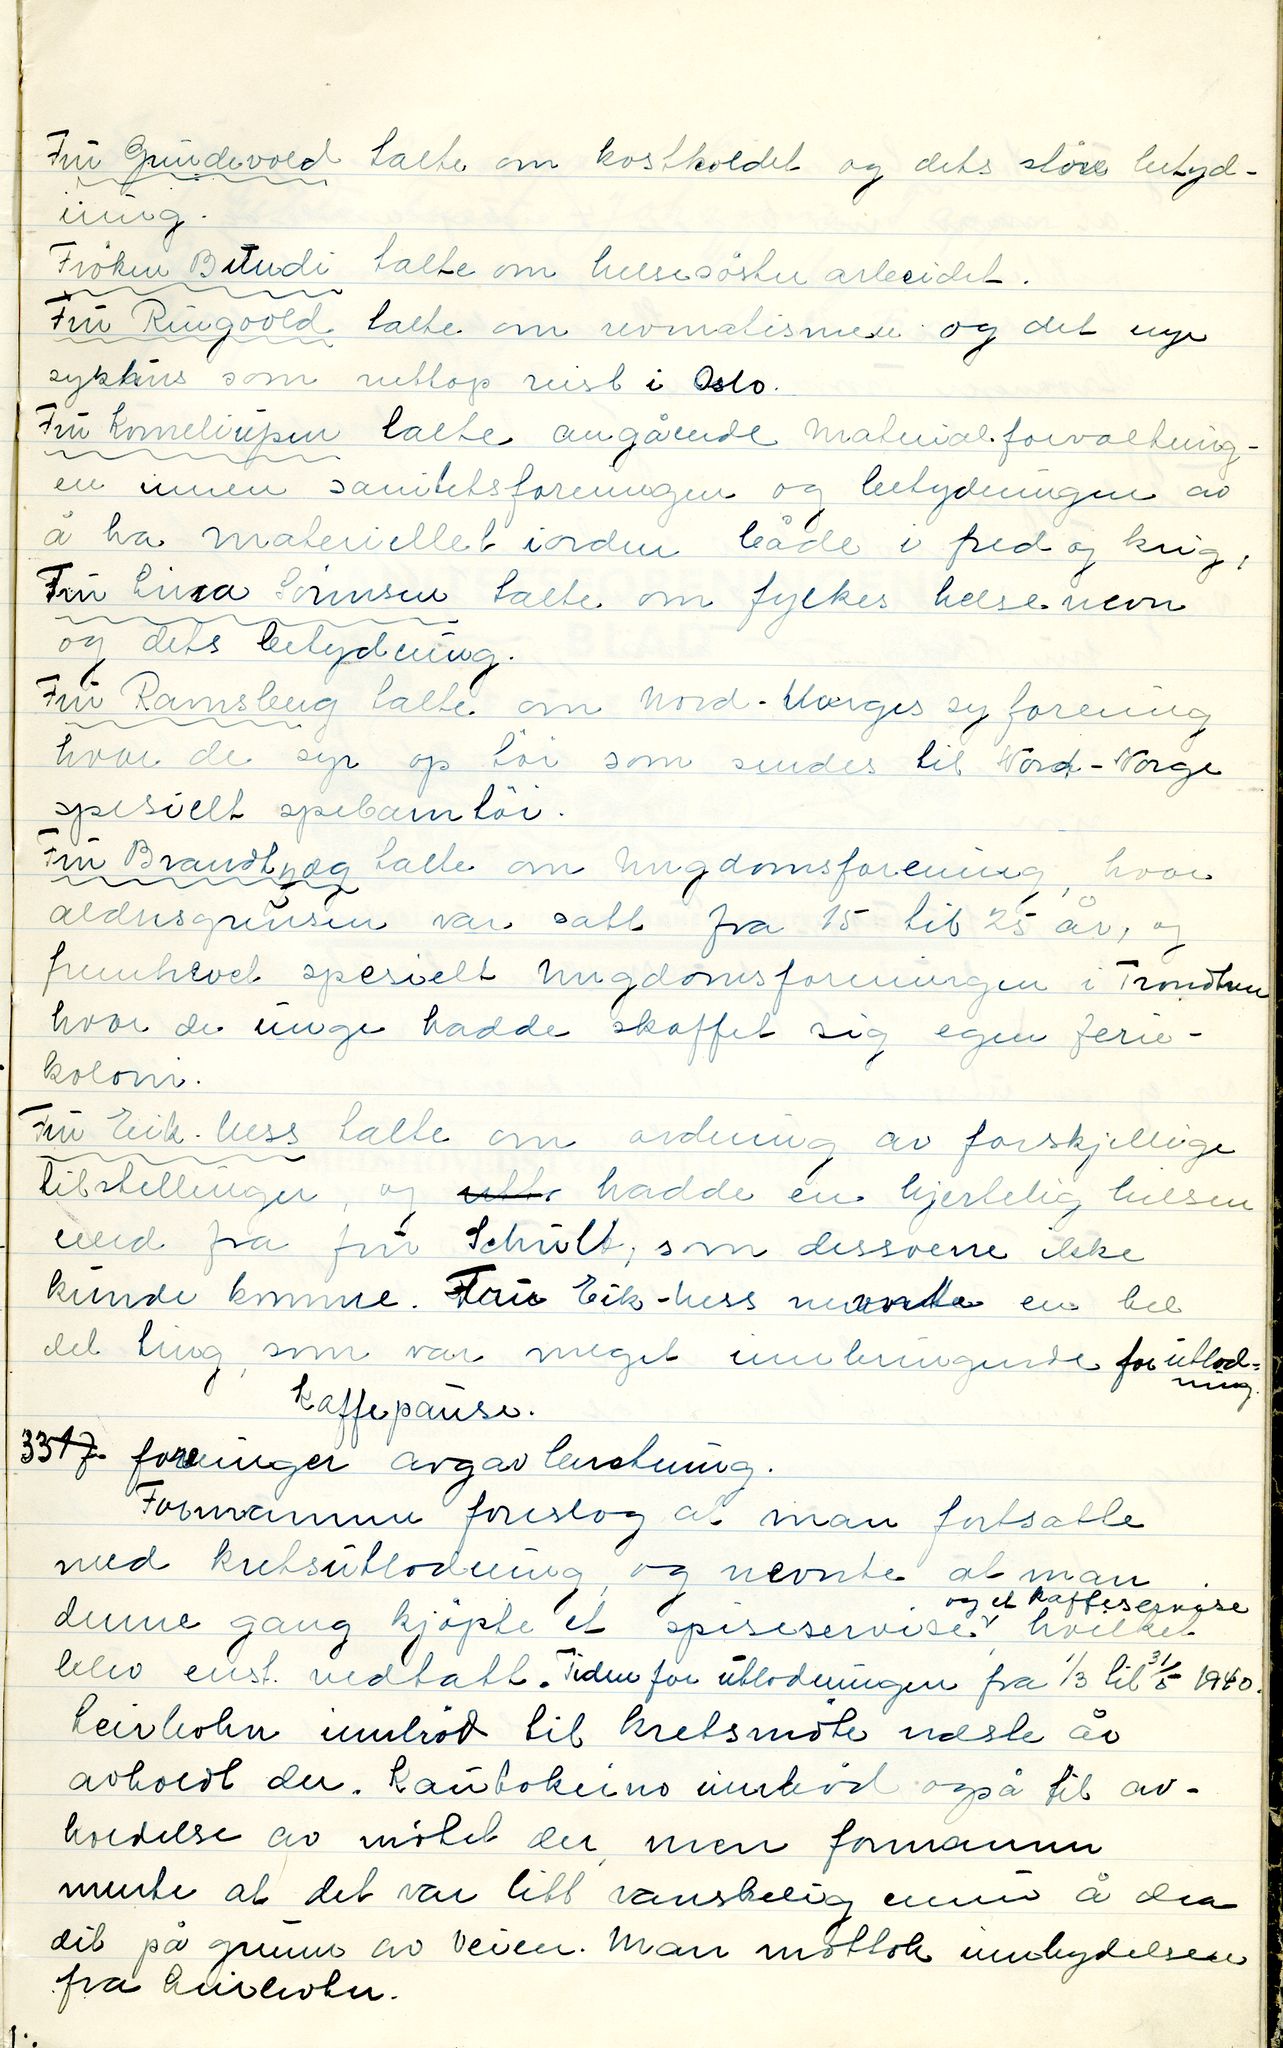 Frü Gründevold talte om kostholdet og dets störe betyd-
ning.
Fröken Bundi talte om helsesöster arbeidet.
Frü Ringvold talte om revmatismen og det nye
sykehüs som nettop reist i Oslo.
Frü Korneliüsen talte angående Materialforvaltning-
en innen sanitetsforeningen og betydningen av
å ha materiellet iorden både i fred og krig,
Frü Lina Sörensen talte om fylkes helsenevn
og dets betydning.
Frü Ramsberg talte om Nord-Norges syforening
hvor de syr op töi som sendes til Nord-Norge
spesielt spebarntöi.
Frü Brandtzæg talte om Ungdomsforening, hvor
aldersgrensen var satt fra 15 til 25 år, og
fremhevet spesielt Ungdomsforeningen i Trondhem
hvor de ünge hadde skaffet sig egen ferie-
koloni.
Frü Eik-Ness talte om ordning av forskjellige
tilstellinger, og hadde en hjertelig hilsen
med fra frü Schült, som dessverre ikke
künde komme. Frü Eik-Ness nevnte en hel
del ting, som var meget innbringende for ütlod-
ning.
Kaffepaüse.
33 foreninger avgav beretning.
Formannen foreslog at man fortsatte
med kretsütlodning, og nevnte at man
denne gang kjöpte et spiseservise og et kaffeservise, hvilket
blev enst. vedtatt. Tiden for ütlodningen fra 1/3 til 31/5 1940.
Leirbotn innböd til kretsmöte næste år
avholdt der. Kaütokeino innböd også til av-
holdelse av mötet der, men formannen
mente at det var litt vanskelig ennü å dra
dit på grünn av veien. Man mottok innbydelsen
fra Leirbotn.